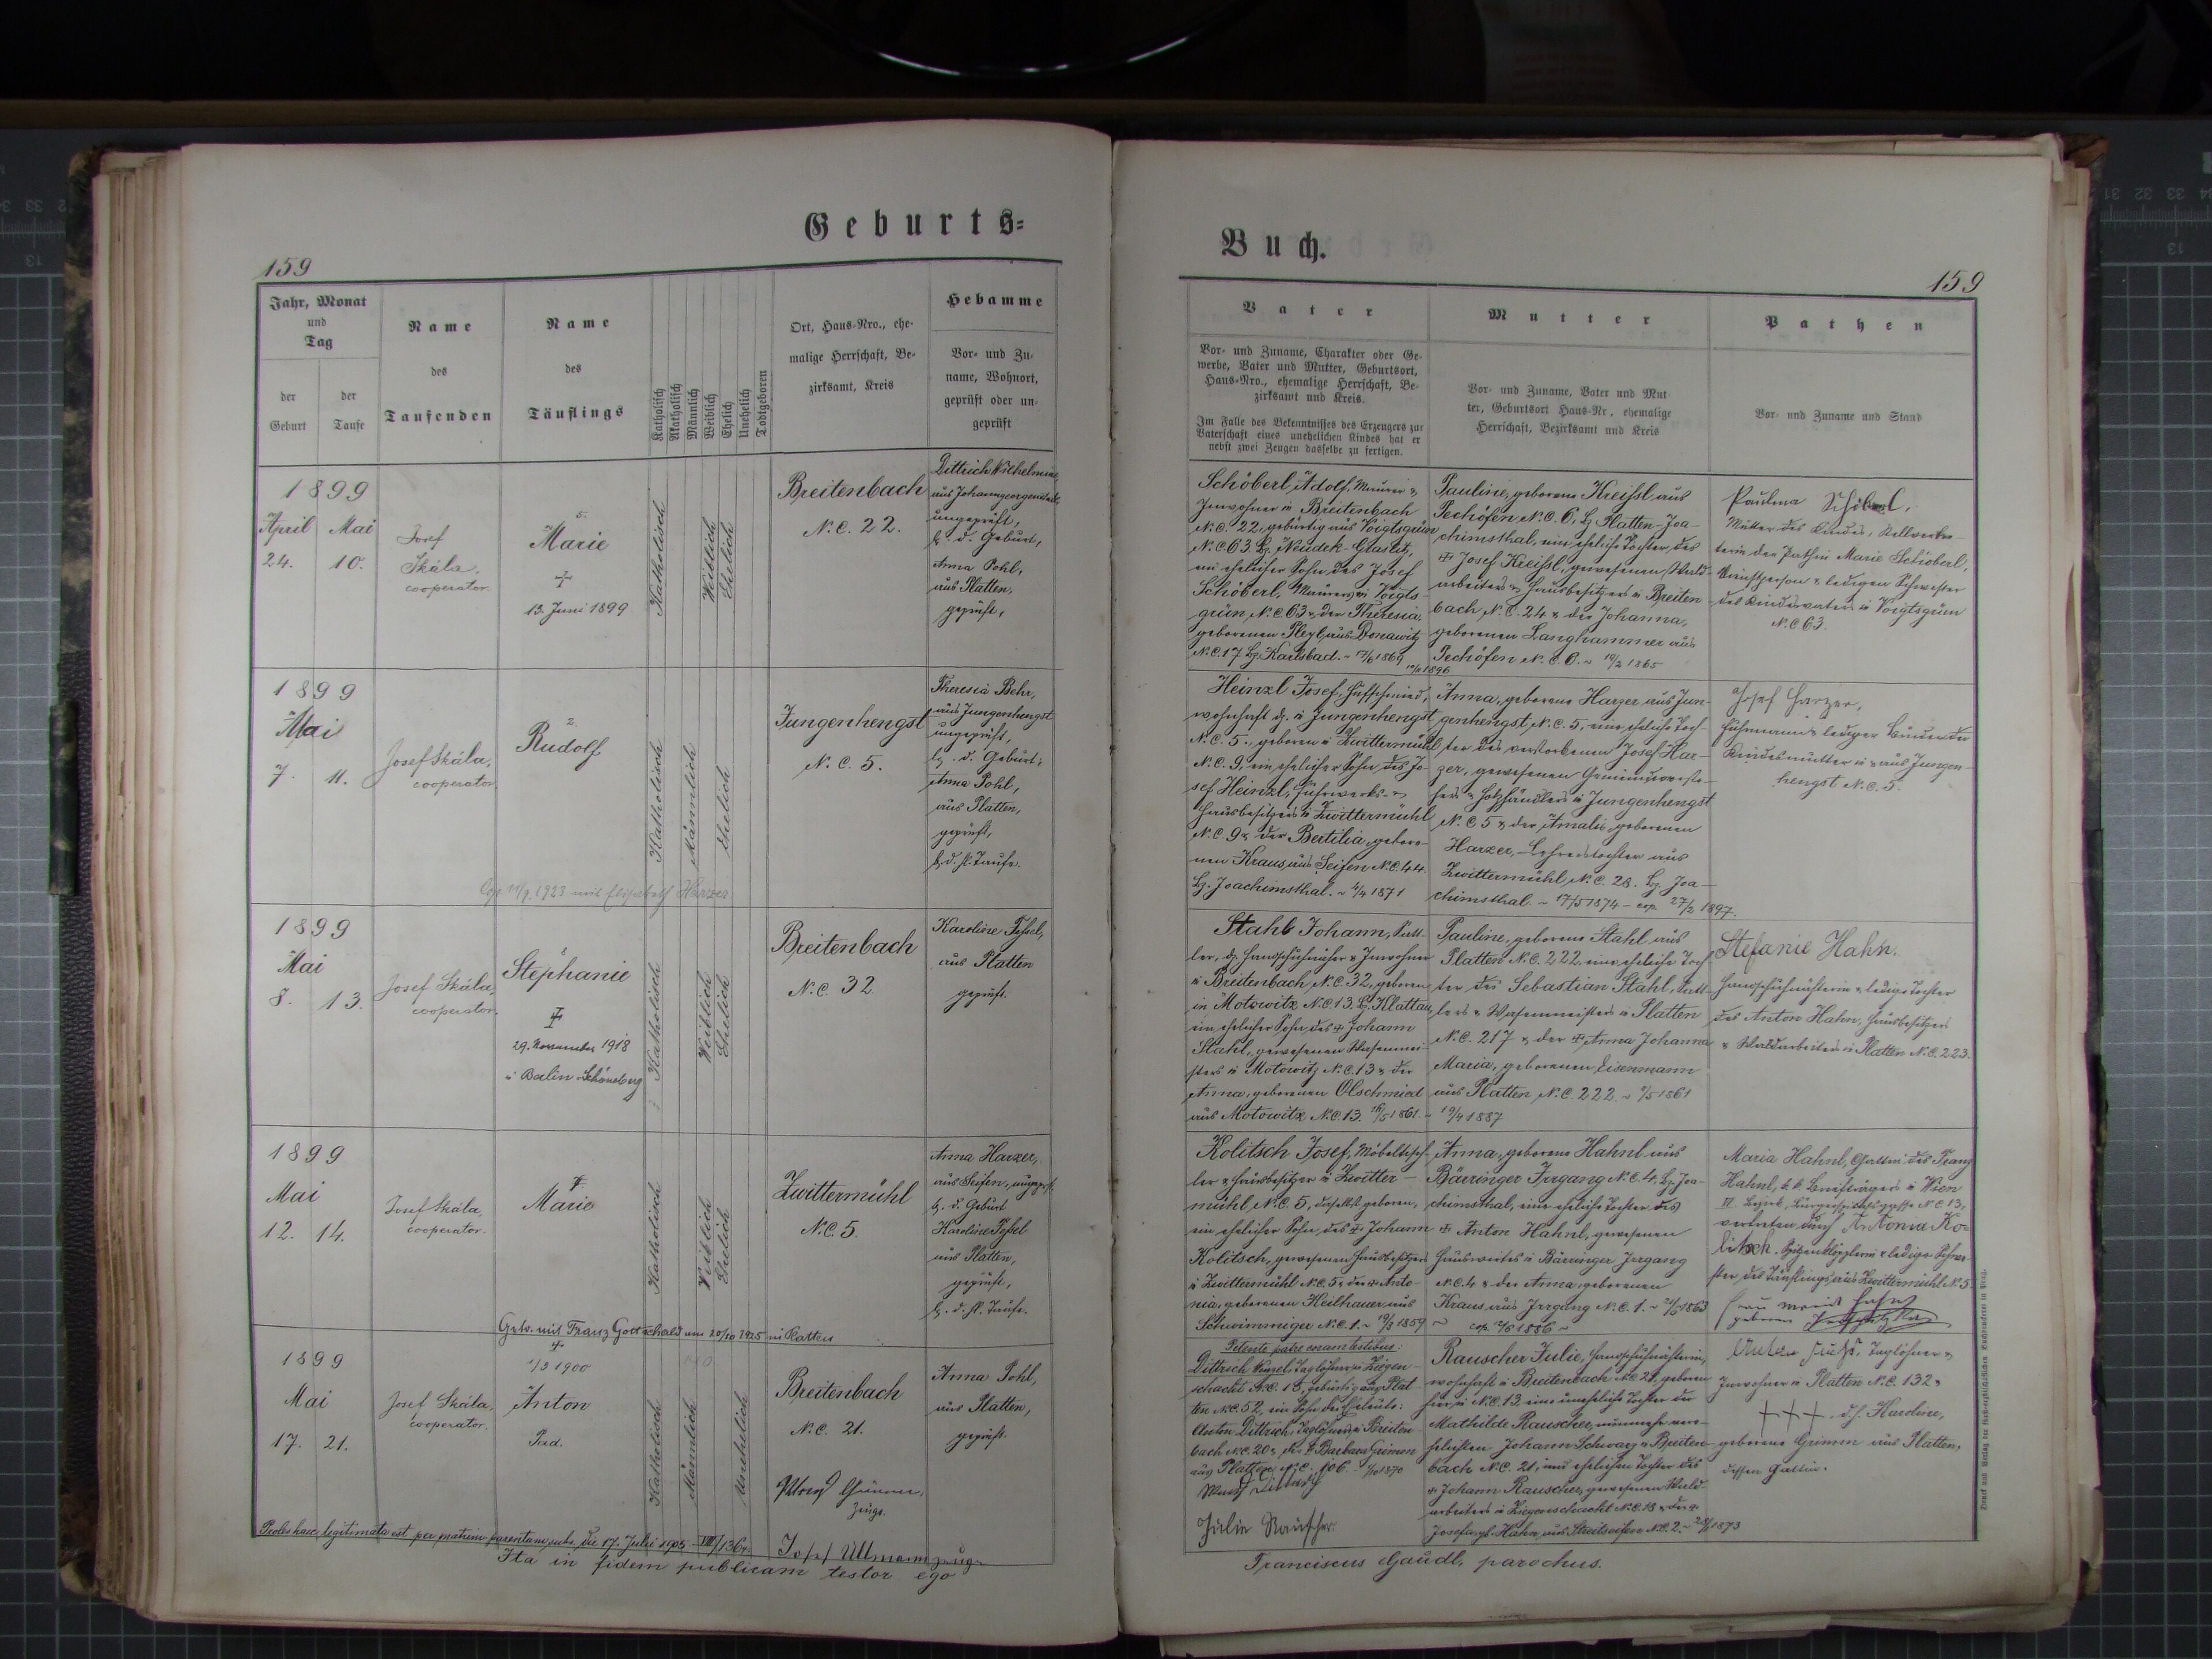 Geburts=
159
Jahr, Monat
und
Tag
der
Geburt
der
Taufe
Name
des
Taufenden
Name
des
Täuflings
Katholisch
Akatholisch
Männlich
Weiblich
Ehelich
Unehelich
Todtgeboren
Ort, Haus-Nro., ehe-
malige Herrschaft, Be-
zirksamt, Kreis
Hebamme
Vor- und Zu-
name, Wohnort,
geprüft oder un-
geprüft
1899
April Mai
24. 10.
Josef
Skála,
cooperator.
5.
Marie
13. Juni 1899
Katholisch
Weiblich
Ehelich
Breitenbach
N.C. 22.
Dittrich Wilhelmine
aus Johanngeorgenstadt,
ungeprüft,
b. d. Geburt,
Anna Pohl,
aus Platten,
geprüft,
1899
Mai
7. 11.
Josef Skála,
cooperator
2.
Rudolf
Katholisch
Männlich
Ehelich
Jungenhengst
N.C. 5.
Theresia Behr,
aus Jungenhengst
ungeprüft,
b. d. Geburt;
Anna Pohl,
aus Platten,
geprüft,
b. d. hl. Taufe.
Cop. 11/9. 1923 mit Elisabeth Harzer
1899
Mai
8. 13.
Josef Skála,
cooperator.
Stephanie
29. November 1918
in Berlin Schöneberg
Katholisch
Weiblich
Ehelich
Breitenbach
N.C. 32.
Karoline
aus Platten
geprüft.
1899
Mai
12. 14.
Josef Skála,
cooperator.
Marie
Katholisch
Weiblich
Ehelich
Zwittermühl
N.C. 5.
Anna Harzer,
aus Seifen,
b. d. Geburt
Karoline
aus Platten,
geprüft,
b. d. hl. Taufe.
Getr. mit Franz Gottschald am 20/10 1925 in Platten
1899
Mai
17. 21.
Josef Skála,
cooperator.
1/3 1900
Anton
Katholisch
Männlich
Unehelich
Breitenbach
N.C. 21.
Zeuge.
Anna Pohl,
aus Platten,
geprüft.
Proles haec legitimata est per matrim. parentum subs. die 17. Julii 1905
Josef Ullmann Zeuge
Ita in fidem publicam testor ego
Buch.
159
Vater
Vor- und Zuname, Charakter oder Ge-
werbe, Vater und Mutter, Geburtsort,
Haus-Nro., ehemalige Herrschaft, Be-
zirksamt und Kreis.
Im Falle des Bekenntnisses des Erzeugers zur
Vaterschaft eines unehelichen Kindes hat er
nebst zwei Zeugen dasselbe zu fertigen.
Mutter
Vor- und Zuname, Vater und Mut-
ter, Geburtsort Haus-Nr., ehemalige
Herrschaft, Bezirksamt und Kreis
Pathen
Vor- und Zuname und Stand
Schöberl Adolf, Maurer u.
Inwohner in Breitenbach
N.C. 22, gebürtig aus Voigtsgrün
N.C. 63 Bz. Neudek-Graslitz,
ein ehelicher Sohn des Josef
Schöberl, Maurers in Voigts-
grün N.C. 63 u. der Theresia,
geborenen Pleyl aus Donawitz
N.C. 17 Bz. Karlsbad.
Pauline, geborene Kreissl aus
Pechöfen N.C. 6, Bz. Platten-Joa-
chimsthal, eine eheliche Tochter des
Josef Kreissl, gewesenen Wald-
arbeiters u. Hausbesitzers in Breiten-
bach N.C. 24 u. der Johanna,
geborenen Langhammer aus
Pechöfen N.C. 6. 19/2 1865
Paulina Schöberl,
Mutter des Kindes, Stellvertre-
terin der Pathin Marie Schöberl,
Dienstperson u. ledigen Schwester
des Kindesvaters in Voigtsgrün
N.C. 63.
Heinzl Josef, Hufschmied,
wohnhaft d. in Jungenhengst
N.C. 5., geboren in Zwittermühl
N.C. 9, ein ehelicher Sohn des Jo-
sef Heinzl, Fuhrwerks- u.
Hausbesitzers in Zwittermühl
N.C. 9 u. der Bertilia, gebore-
nen Kraus, aus Seifen N.C. 44
Bz. Joachimsthal. 4/4 1871
Anna, geborene Harzer aus Jun-
genhengst, N.C. 5, eine eheliche Toch-
ter des verstorbenen Josef Har-
zer, gewesenen Gemeindevorste-
hers u. Holzhändlers in Jungenhengst
N.C. 5 u. der Amalie, geborenen
Harzer, Lehrerstochter aus
Zwittermühl N.C. 28. Bz. Joa-
chimsthal. 17/5 1874 - cop. 27/2 1897.
Josef Harzer,
Fuhrmann u. lediger Bruder der
Kindesmutter in u. aus Jungen-
hengst N.C. 5.
Stahl Johann,
ler, d. Handschuhnäher u. Inwohner
in Breitenbach N.C. 32, geboren
in Motowitz N.C. 13 Bz. Klattau,
ein ehelicher Sohn des Johann
Stahl, gewesenen Wasenmei-
sters in Motowitz N.C. 13 u. der
Anna, geborenen Olschmied
aus Motowitz N.C. 13. 16/5 1861.
Pauline, geborene Stahl aus
Platten N.C. 222, eine eheliche Toch-
ter des Sebastian Stahl,
lers u. Wasenmeisters in Platten
N.C. 217 u. der Anna Johanna
Maria, geborenen Eisenmann
aus Platten N.C. 222. 1/5 1861
19/4 1887
Stefanie Hahn.
Handschuhnähterin u. ledige Tochter
des Anton Hahn, Hausbesitzers
u. Waldarbeiters in Platten N.C. 223.
Kolitsch Josef, Möbeltisch-
ler u. Hausbesitzer in Zwitter-
mühl N.C. 5, daselbst geboren,
ein ehelicher Sohn des Johann
Kolitsch, gewesenen Hausbesitzers
in Zwittermühl N.C. 5 u. der Anto-
nia, geborenen Heilhauer aus
Schwimmiger N.C. 1. 19/3 1859
Anna, geborene Hahnl aus
Bärringer Irrgang N.C. 4, Bz. Joa-
chimsthal, eine eheliche Tochter des
Anton Hahnl, gewesenen
Hauswirtes in Bärringer Irrgang
N.C. 4 u. der Anna, geborenen
Kraus, aus Irrgang N.C. 1. 1863
Maria Hahnl, Gattin des Franz
Hahnl, k.k. Briefträgers in Wien
vertreten durch Antonia Ko-
litsch, Spitzenklöpplerin u. ledige Schwe-
ster des Täuflings aus Zwittermühl N. 5.
Petente patre coram testibus:
Dittrich Taglöhner in Ziegen-
schacht N.C. 18, gebürtig aus Plat-
ten N.C. 52, ein Sohn der Eheleute:
Anton Dittrich, Taglöhners in Breiten-
bach N.C. 20 u. der Barbara Grimm
aus Platten N.C. 106 1870
Julie Rauscher.
Rauscher Julie, Handschuhnähterin,
wohnhaft in Breitenbach N.C. 21, geboren
hier in N.C. 13, eine uneheliche Tochter der
Mathilde Rauscher, nunmehr vere-
helichten Johann Schwarz in Breiten-
bach N.C. 21, einer ehelichen Tochter des
Johann Rauscher, gewesenen Wald-
arbeiters in Ziegenschacht N.C. 18 u. der
Josefa, geb. Hahn, aus Streitseifen N.C. 2. 1873
Anton Fuchs, Taglöhner u.
Inwohner in Platten N.C. 132 u.
+++ d.h. Karoline,
geborene Grimm aus Platten,
dessen Gattin.
Franciscus Gaudl, parochus.